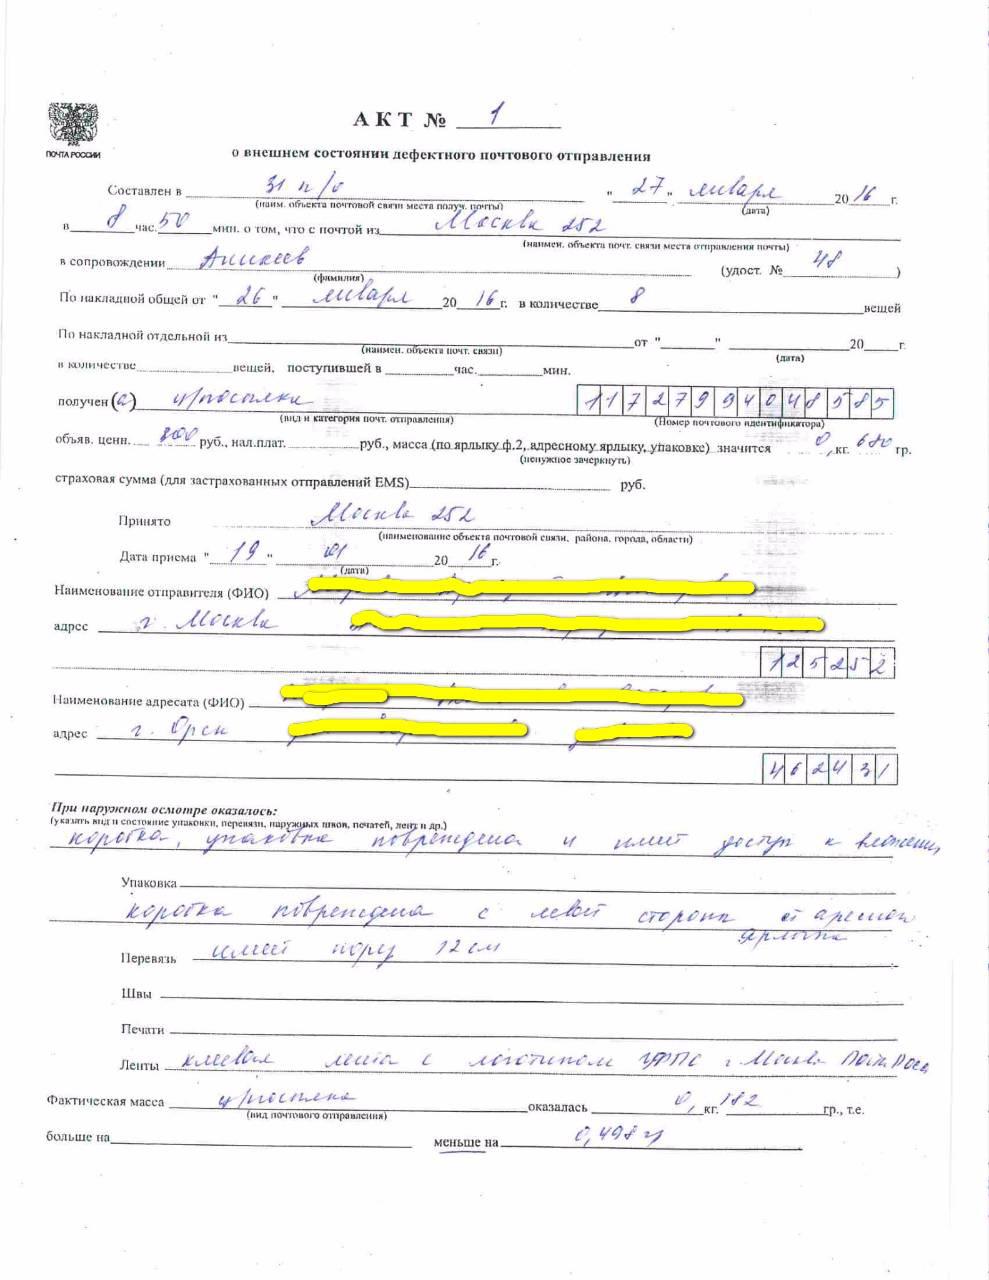 ПОЧТА РОССИИ
АКТ № 1
о внешнем состоянии дефектного почтового отправления
Составлен в 31 п/о "27" января 2016 г.
(наим. объекта почтовой связи места получ. почты) (дата)
в 8 час. 50 мин. о том, что с почтой из Москва 252
(наимен. объекта почт. связи места отправления почты)
в сопровождении Аникеев (удост. № 48)
(фамилия)
По накладной общей от "26" января 2016 г. в количестве 8 вещей
По накладной отдельной из от " " 20 г.
(наимен. объекта почт. связи) (дата)
в количестве вещей, поступившей в час. мин.
получен (а) ц/посылка 11727994048585
(вид и категория почт. отправления) (Номер почтового идентификатора)
объяв. ценн. 800 руб., нал.плат. руб., масса (по ярлыку ф.2, адресному ярлыку, упаковке) значится 0, кг. 680 гр.
(ненужное зачеркнуть)
страховая сумма (для застрахованных отправлений EMS) руб.
Принято Москва 252
(наименование объекта почтовой связи, района, города, области)
Дата приема "19" 01 2016 г.
(дата)
Наименование отправителя (ФИО)
адрес г. Москва
125252
Наименование адресата (ФИО)
адрес г. Орск
462431
При наружном осмотре оказалось:
(указать вид и состояние упаковки, перевязи, наружных швов, печатей, лент и др.)
коробка, упаковка повреждена и имеет доступ к вложению
Упаковка
коробка повреждена с левой стороны от адресной
ярлыка
Перевязь имеет порез 12 см
Швы
Печати
Ленты клеевая лента с логотипом УФПС г. Москва
Фактическая масса ц/посылка оказалась 0, кг. 182 гр., т.е.
(вид почтового отправления)
больше на меньше на 0,498 гр